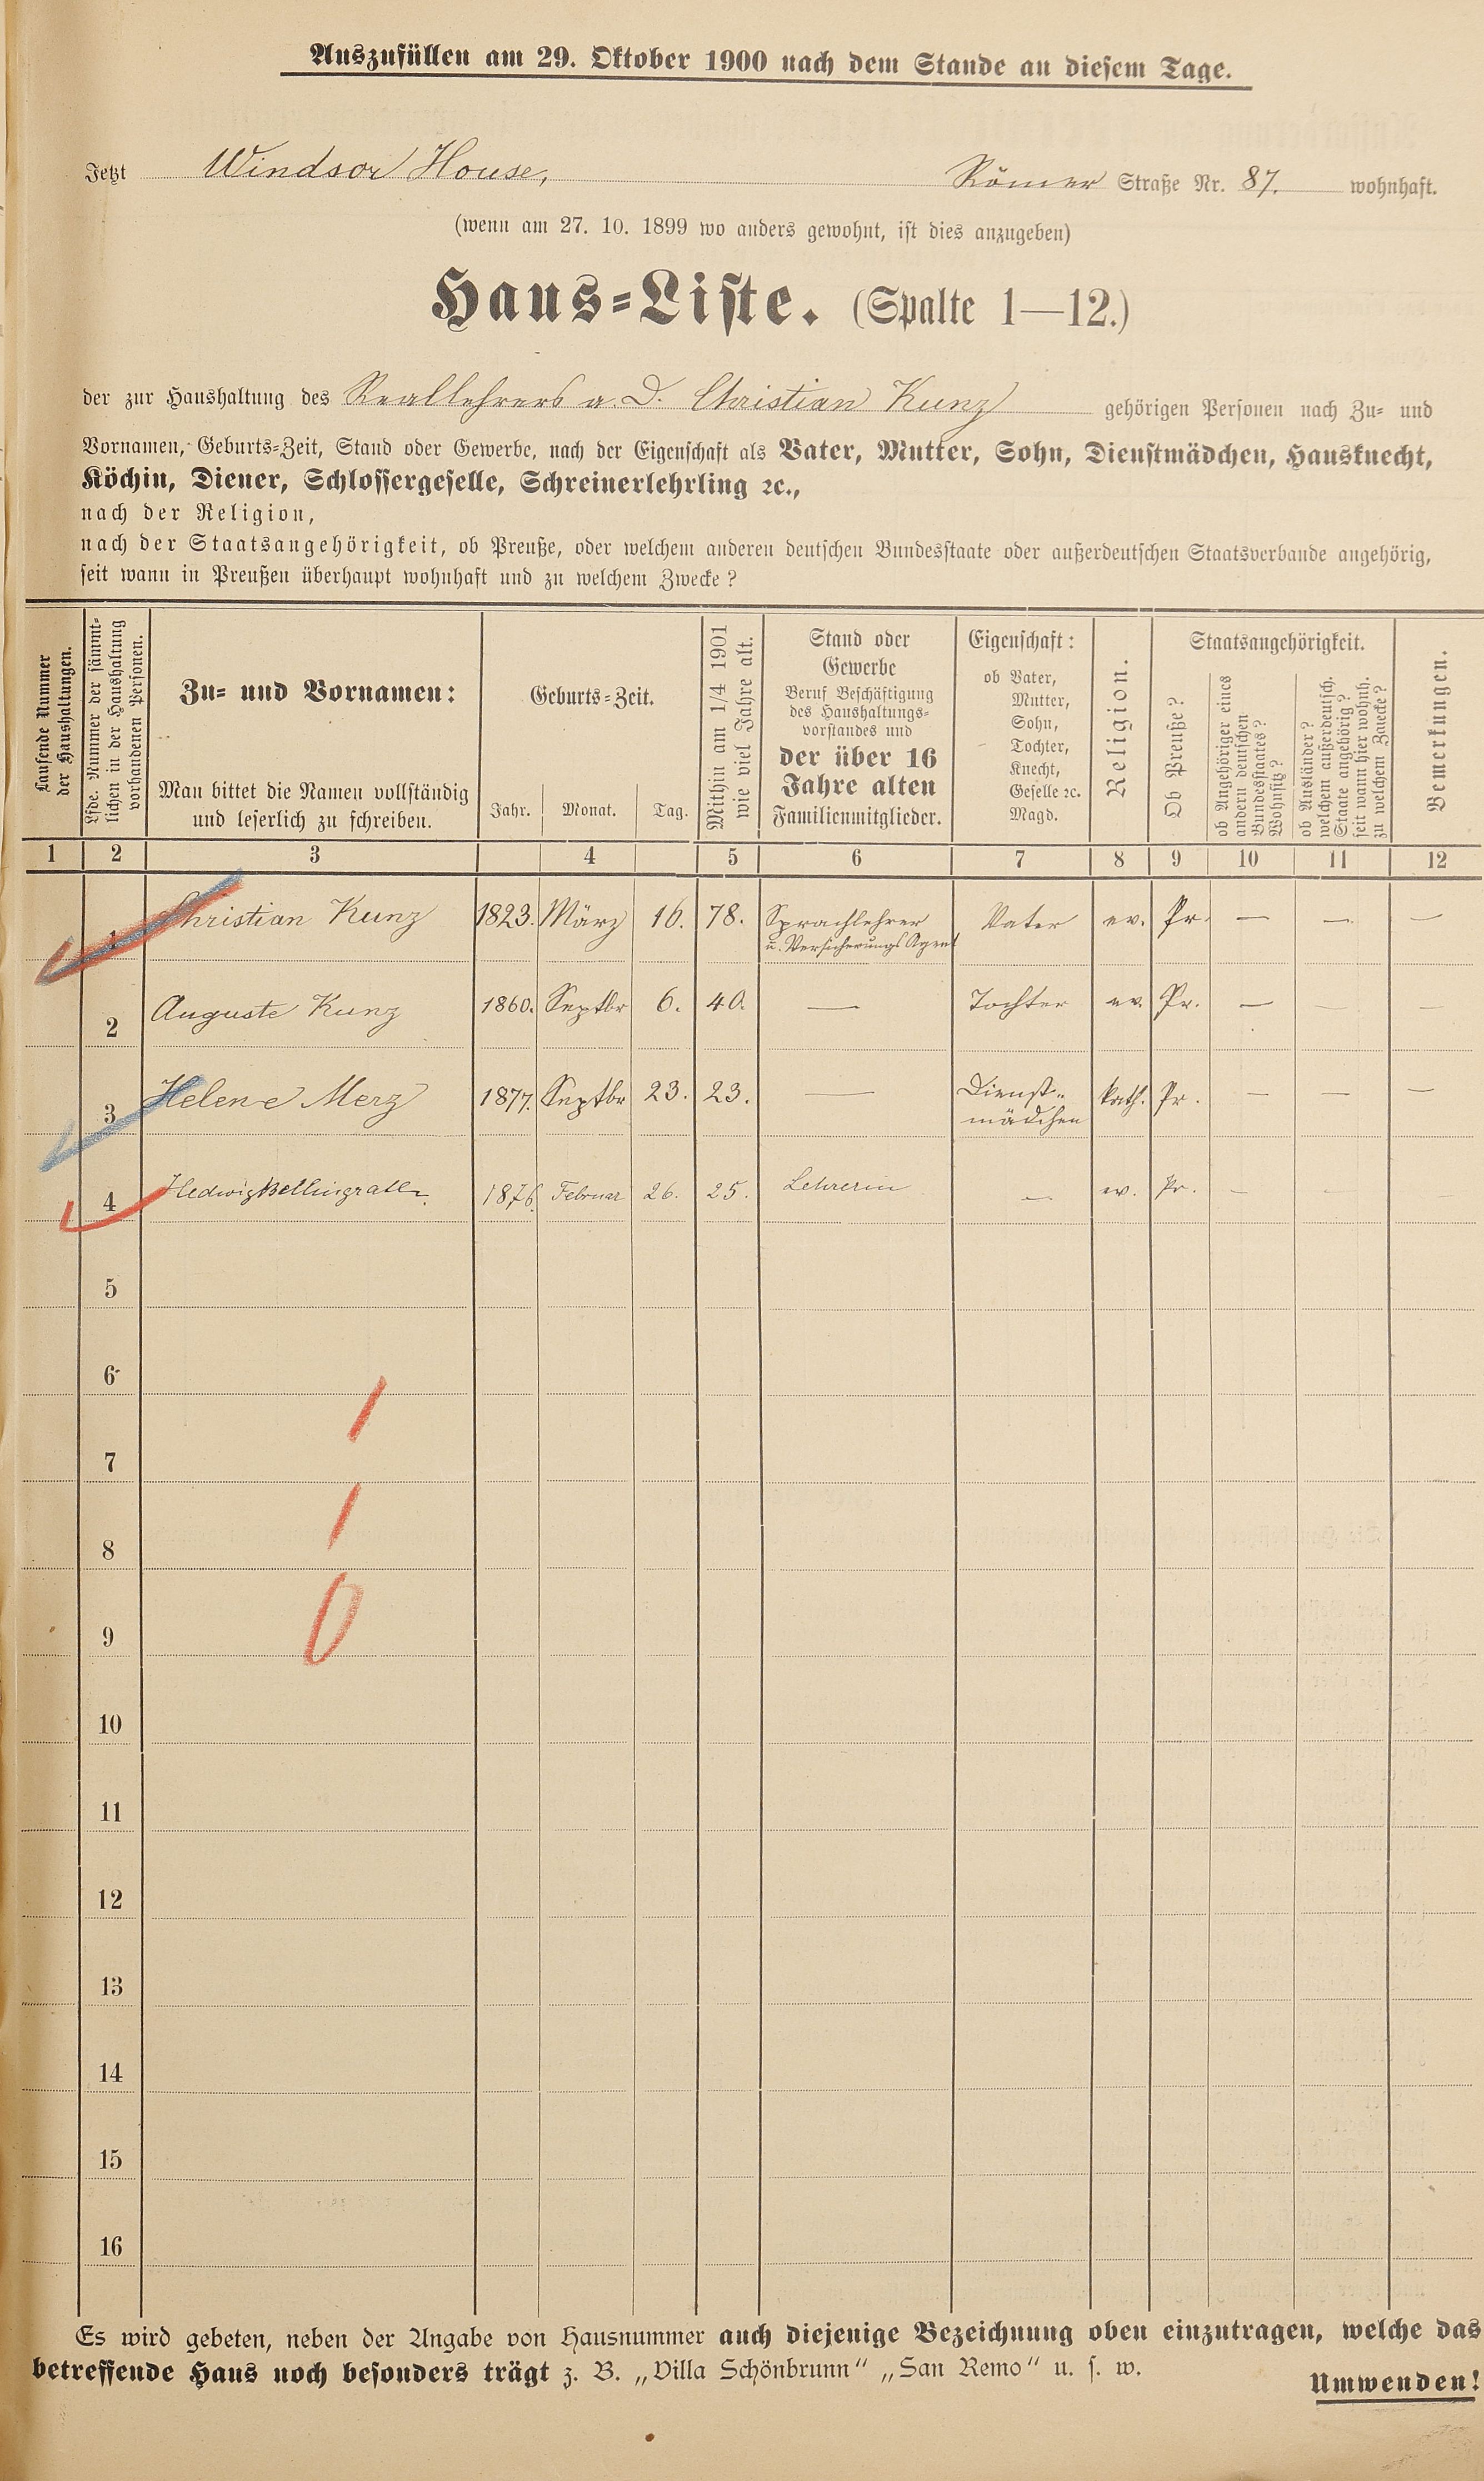 Auszufüllen am 29. Oktober 1900 nach dem Stande an diesem Tage.
Jetzt Windsor House, Römer Straße Nr. 87. wohnhaft.
(wenn am 27. 10. 1899 wo anders gewohnt, ist dies anzugeben)
Haus-Liste. (Spalte 1—12.)
der zur Haushaltung des Reallehrers a. D. Christian Kunz gehörigen Personen nach Zu- und
Vornamen, Geburts-Zeit, Stand oder Gewerbe, nach der Eigenschaft als Vater, Mutter, Sohn, Dienstmädchen, Hausknecht,
Köchin, Diener, Schlossergeselle, Schreinerlehrling ꝛc.,
nach der Religion,
nach der Staatsangehörigkeit, ob Preuße, oder welchem anderen deutschen Bundesstaate oder außerdeutschen Staatsverbande angehörig,
seit wann in Preußen überhaupt wohnhaft und zu welchem Zwecke?
Laufende Nummer
der Haushaltungen.
Lfde. Nummer der sämmt-
lichen in der Haushaltung
vorhandenen Personen.
Zu- und Vornamen:
Man bittet die Namen vollständig
und leserlich zu schreiben.
Geburts-Zeit.
Jahr. Monat. Tag.
Mithin am 1/4 1901
wie viel Jahre alt.
Stand oder
Gewerbe
Beruf Beschäftigung
des Haushaltungs-
vorstandes und
der über 16
Jahre alten
Familienmitglieder.
Eigenschaft:
ob Vater,
Mutter,
Sohn,
Tochter,
Knecht,
Geselle ꝛc.
Magd.
Religion.
Staatsangehörigkeit.
Ob Preuße?
ob Angehöriger eines
andern deutschen
Bundesstaates?
Wohnsitz?
ob Ausländer?
welchem außerdeutsch.
Staate angehörig?
seit wann hier wohnh.
zu welchem Zwecke?
Bemerkungen.
1 2 3 4 5 6 7 8 9 10 11 12
1 Christian Kunz 1823. März 16. 78. Sprachlehrer Vater ev. Pr. — — —
u. Versicherungs Agent
2 Auguste Kunz 1860. Septbr 6. 40. — Tochter ev. Pr. — — —
3 Helene Merz 1877. Septbr 23. 23. — Dienst- kath. Pr. — — —
mädchen
4 Hedwig Bellingrath. 1876. Februar 26. 25. Lehrerin — ev. Pr. — — —
5
6
7
8
9
10
11
12
13
14
15
16
1
1
0
Es wird gebeten, neben der Angabe von Hausnummer auch diejenige Bezeichnung oben einzutragen, welche das
betreffende Haus noch besonders trägt z. B. „Villa Schönbrunn“ „San Remo“ u. s. w.
Umwenden!